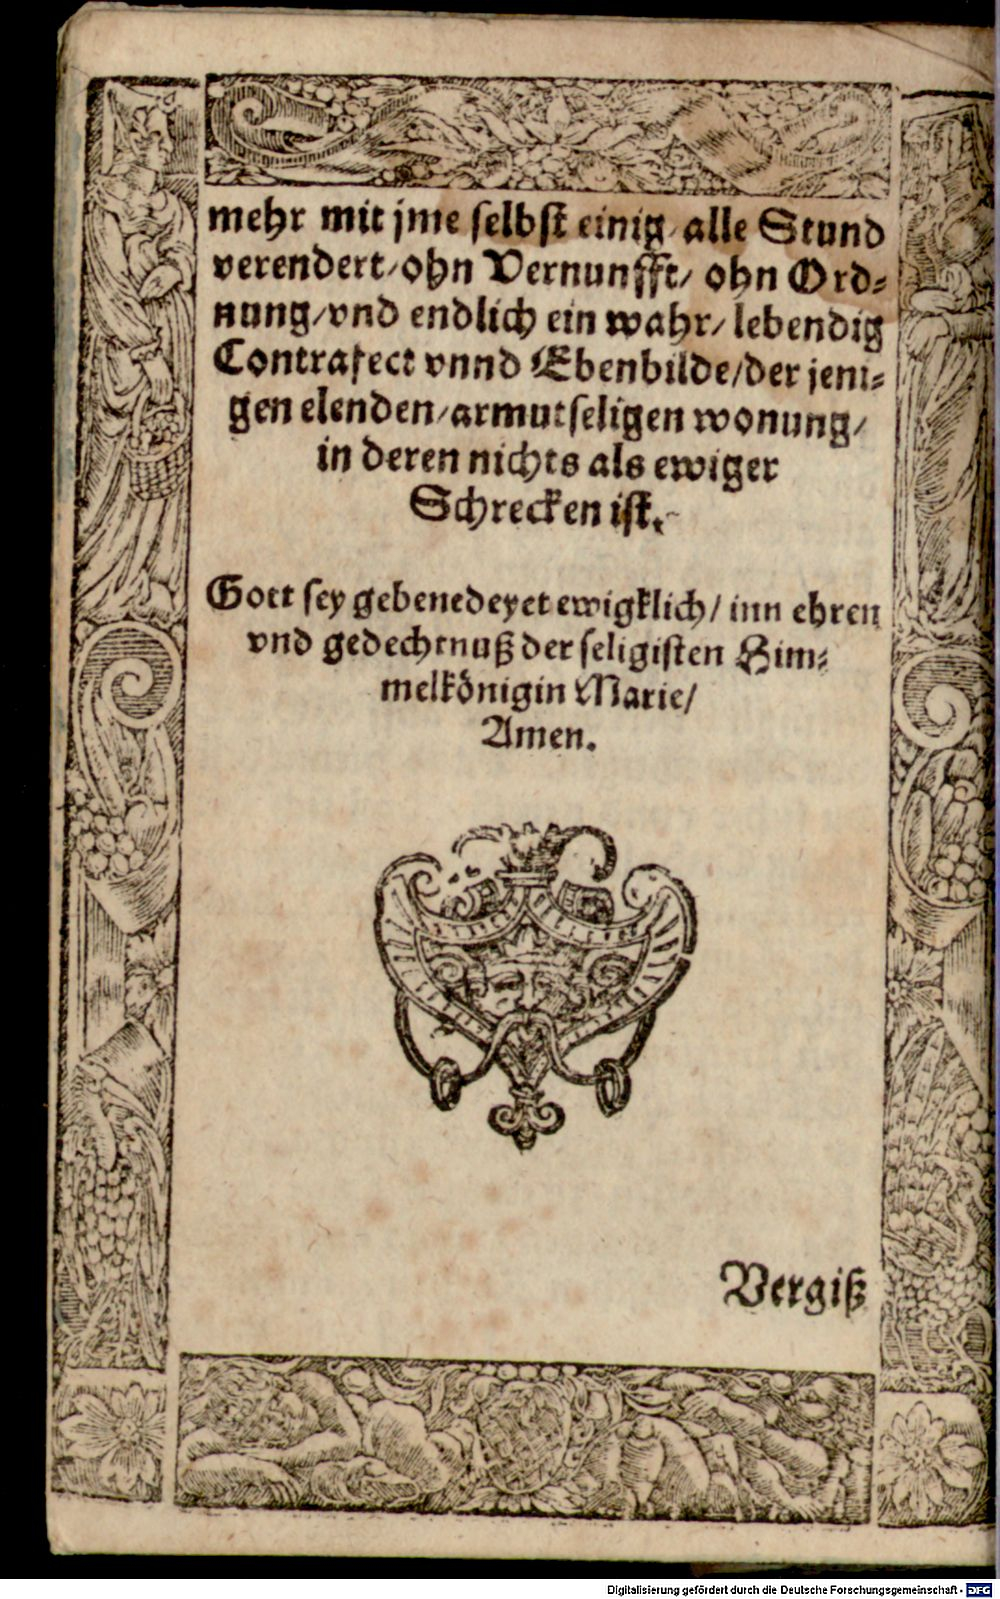 mehr mit jme selbst einig/ alle Stund
verendert/ ohn Vernunfft/ ohn Ord⸗
nung/ vnd endlich ein wahr/ lebendig
Contrafect vnnd Ebenbilde/ der jeni⸗
gen elenden/ armutseligen wonung/
in deren nichts als ewiger
Schrecken ist.
Gott sey gebenedeyet ewigklich/ inn ehren
vnd gedechtnuß der seligisten Him⸗
melkönigin Marie/
Amen.
Vergiß
Digitalisierung gefördert durch die Deutsche Forschungsgemeinschaft - DFG